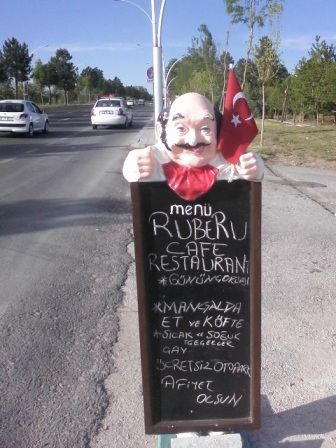 menü
RUBERU
CAFE
RESTAURANT
*GÜNÜNÇORBASI
*MANGALDA
ET VE KÖFTE
*SICAK VE SOĞUK
ÇAY
ÜCRETSİZ OTOPARK
AFİYET
OLSUN